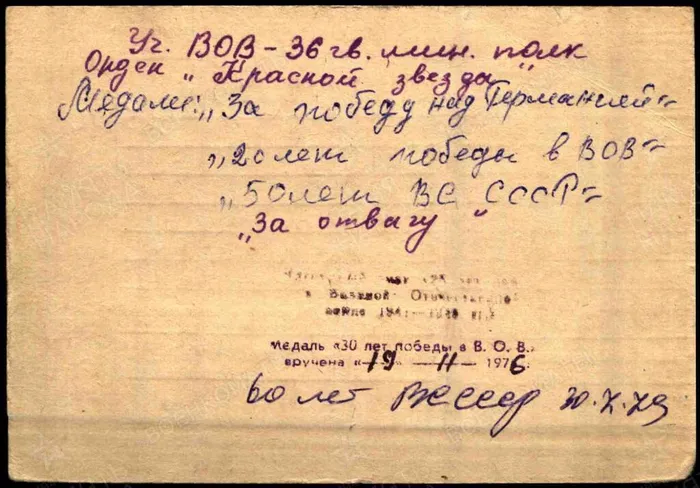 Уч. ВОВ - 36 гв. мин. полк
Орден „Красной звезды"
Медали: „За победу над Германией"
„20 лет победы в ВОВ"
„50 лет ВС СССР"
„За отвагу"
в Великой Отечественной
войне 1941—1945 г.г.
медаль «30 лет победы в В. О. В.»
вручена «19» — 11 — 1976.
60 лет ВС СССР